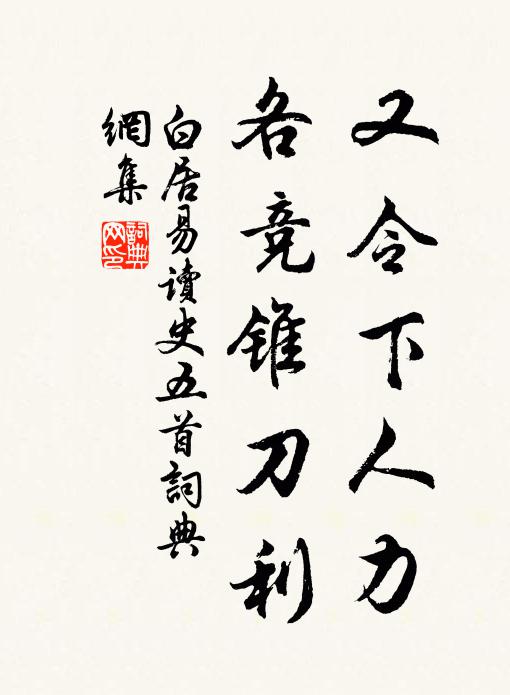 又令下人力
各竞锥刀利
白居易讀史五首詞典
網集
詞典
网印